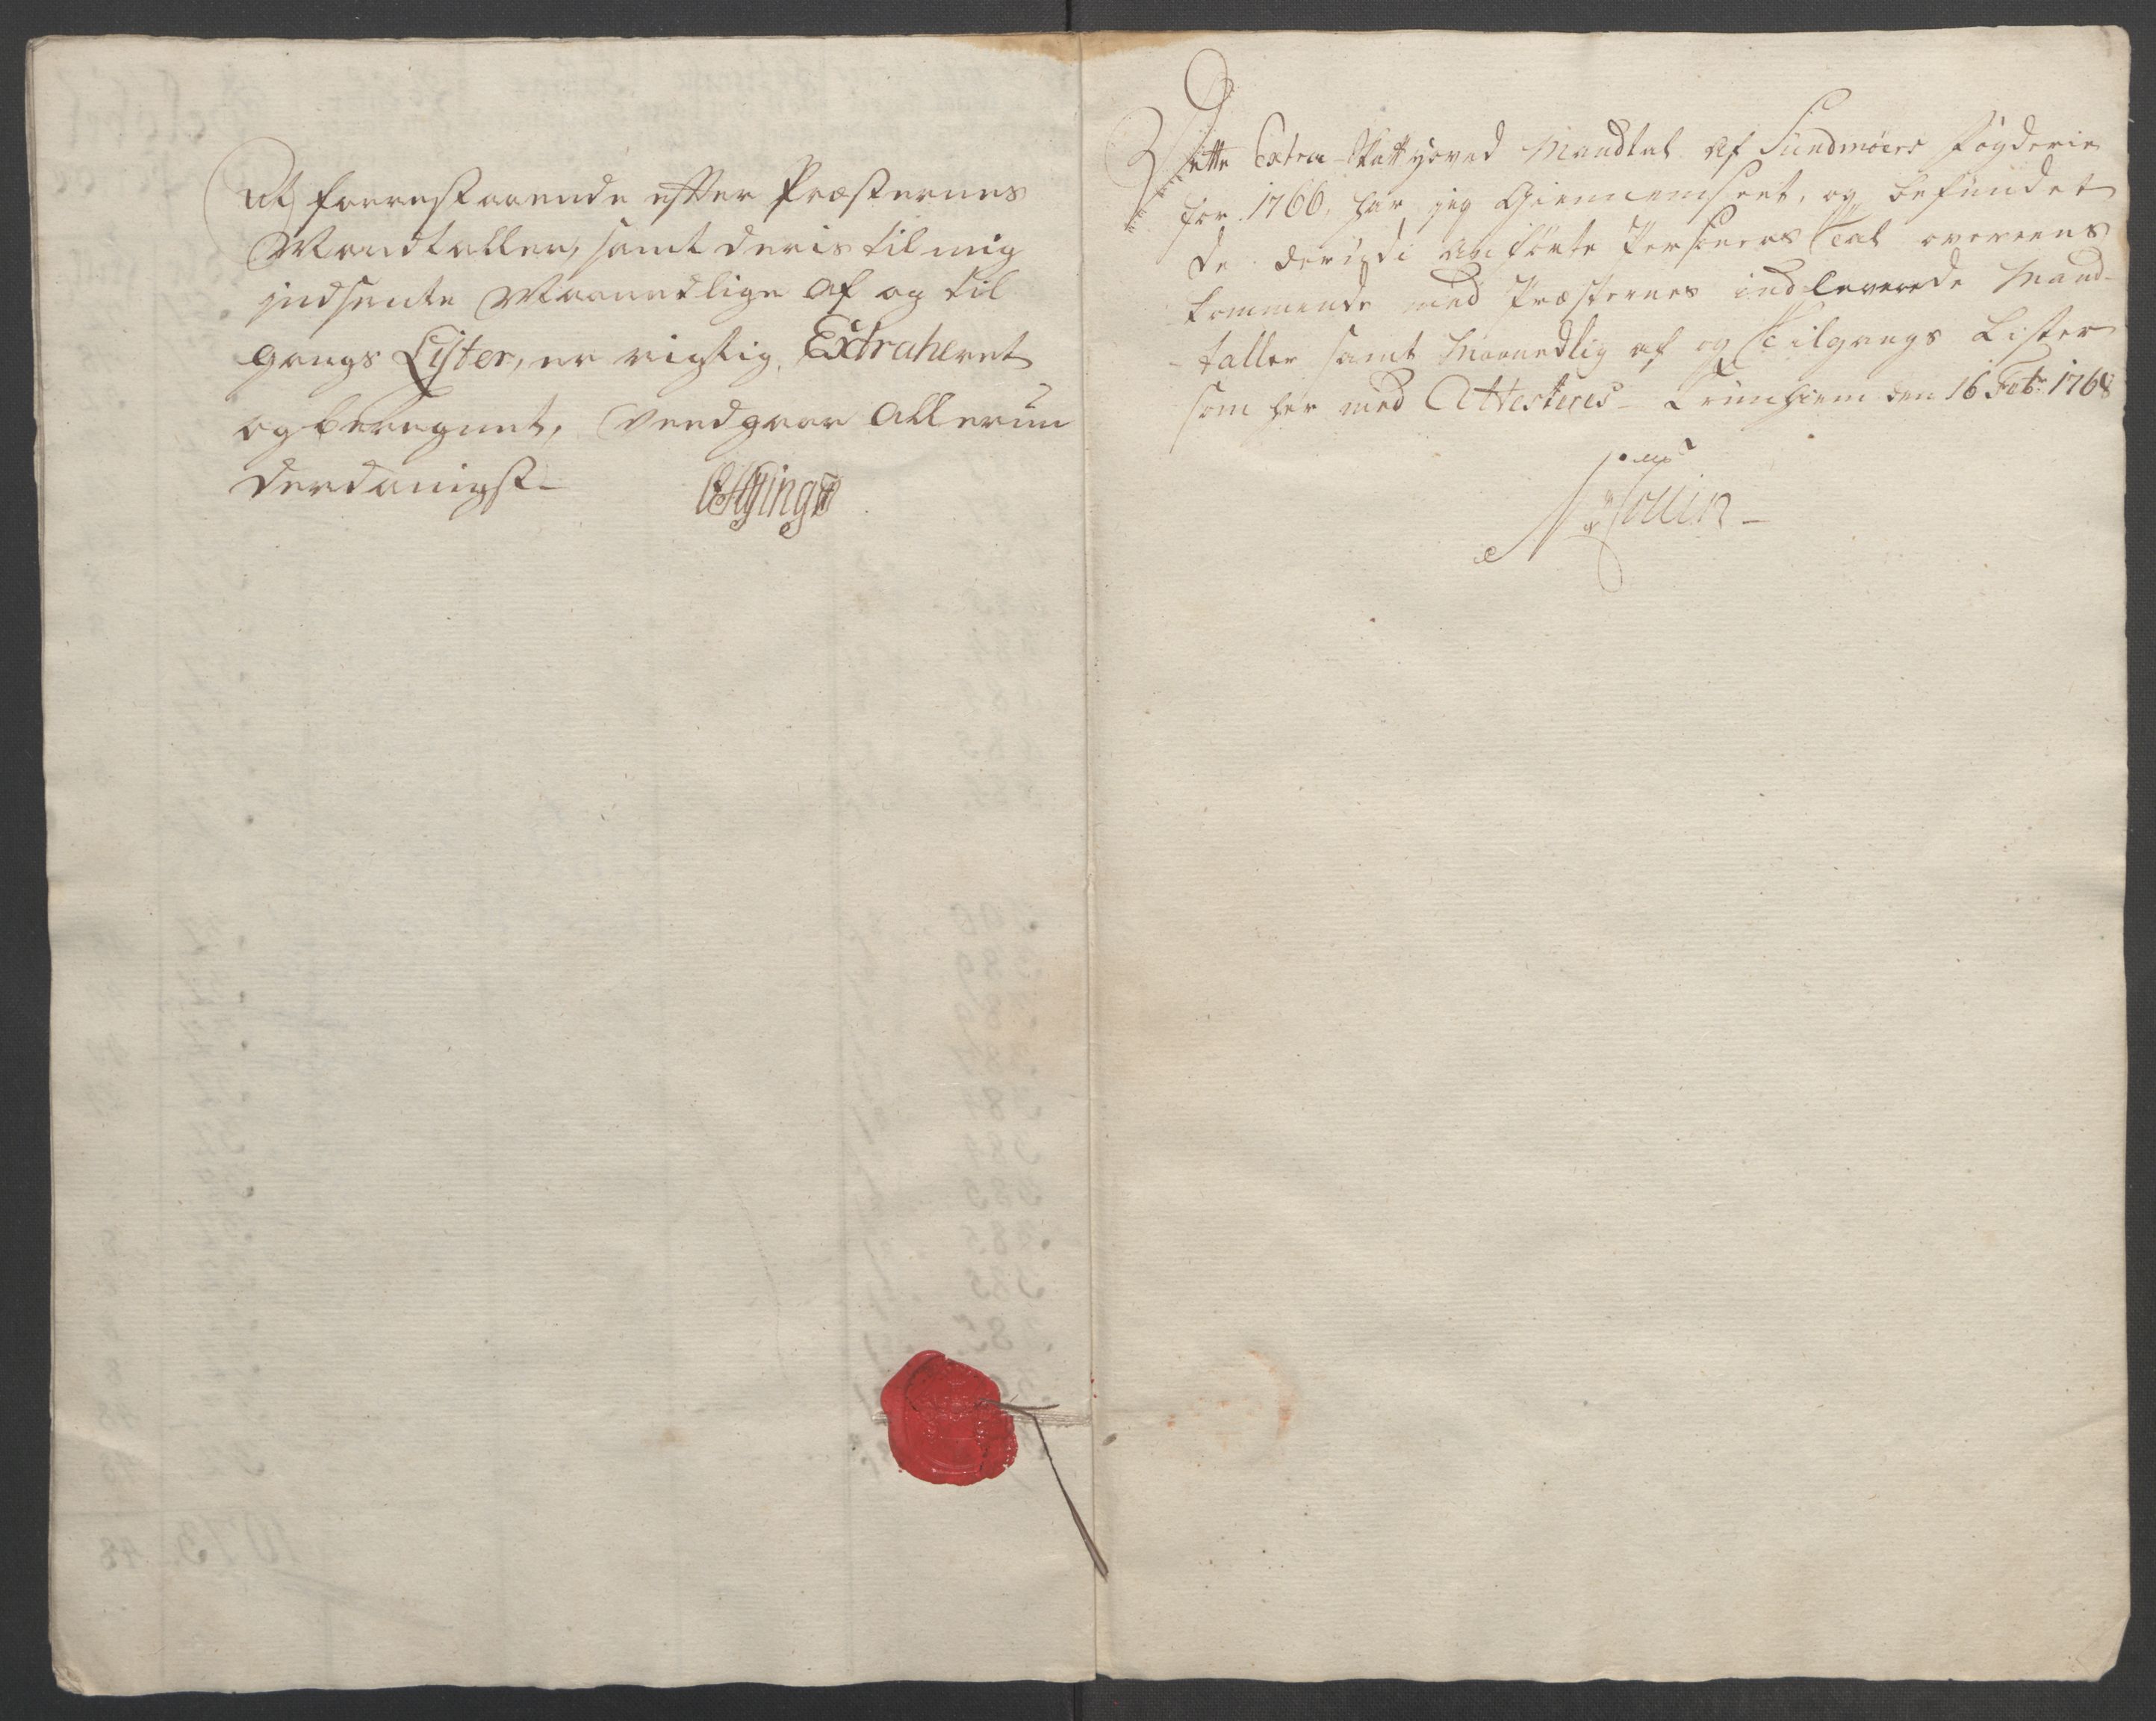 At forrestaaende efter Præsternes
Mandtaller, samt deris til mig
indsente Maanetlige af og til
gangs Lister, er rigtig Extraheret
og beregnet, Vendgaar Allerun
derdanigst
Dette Extra-Skatt hoved Mandtal af Sundmøers Fogderie
for 1766, har jeg Giennemseet, og befundet
de derudi anførte Persohners Tal overeens
kommende med Præsternes indleverede Mand-
taller samt Maanedlig af og Tilgangs Lister
som her med Attesteres - Trunhiem den 16 Febr. 1768
Collin